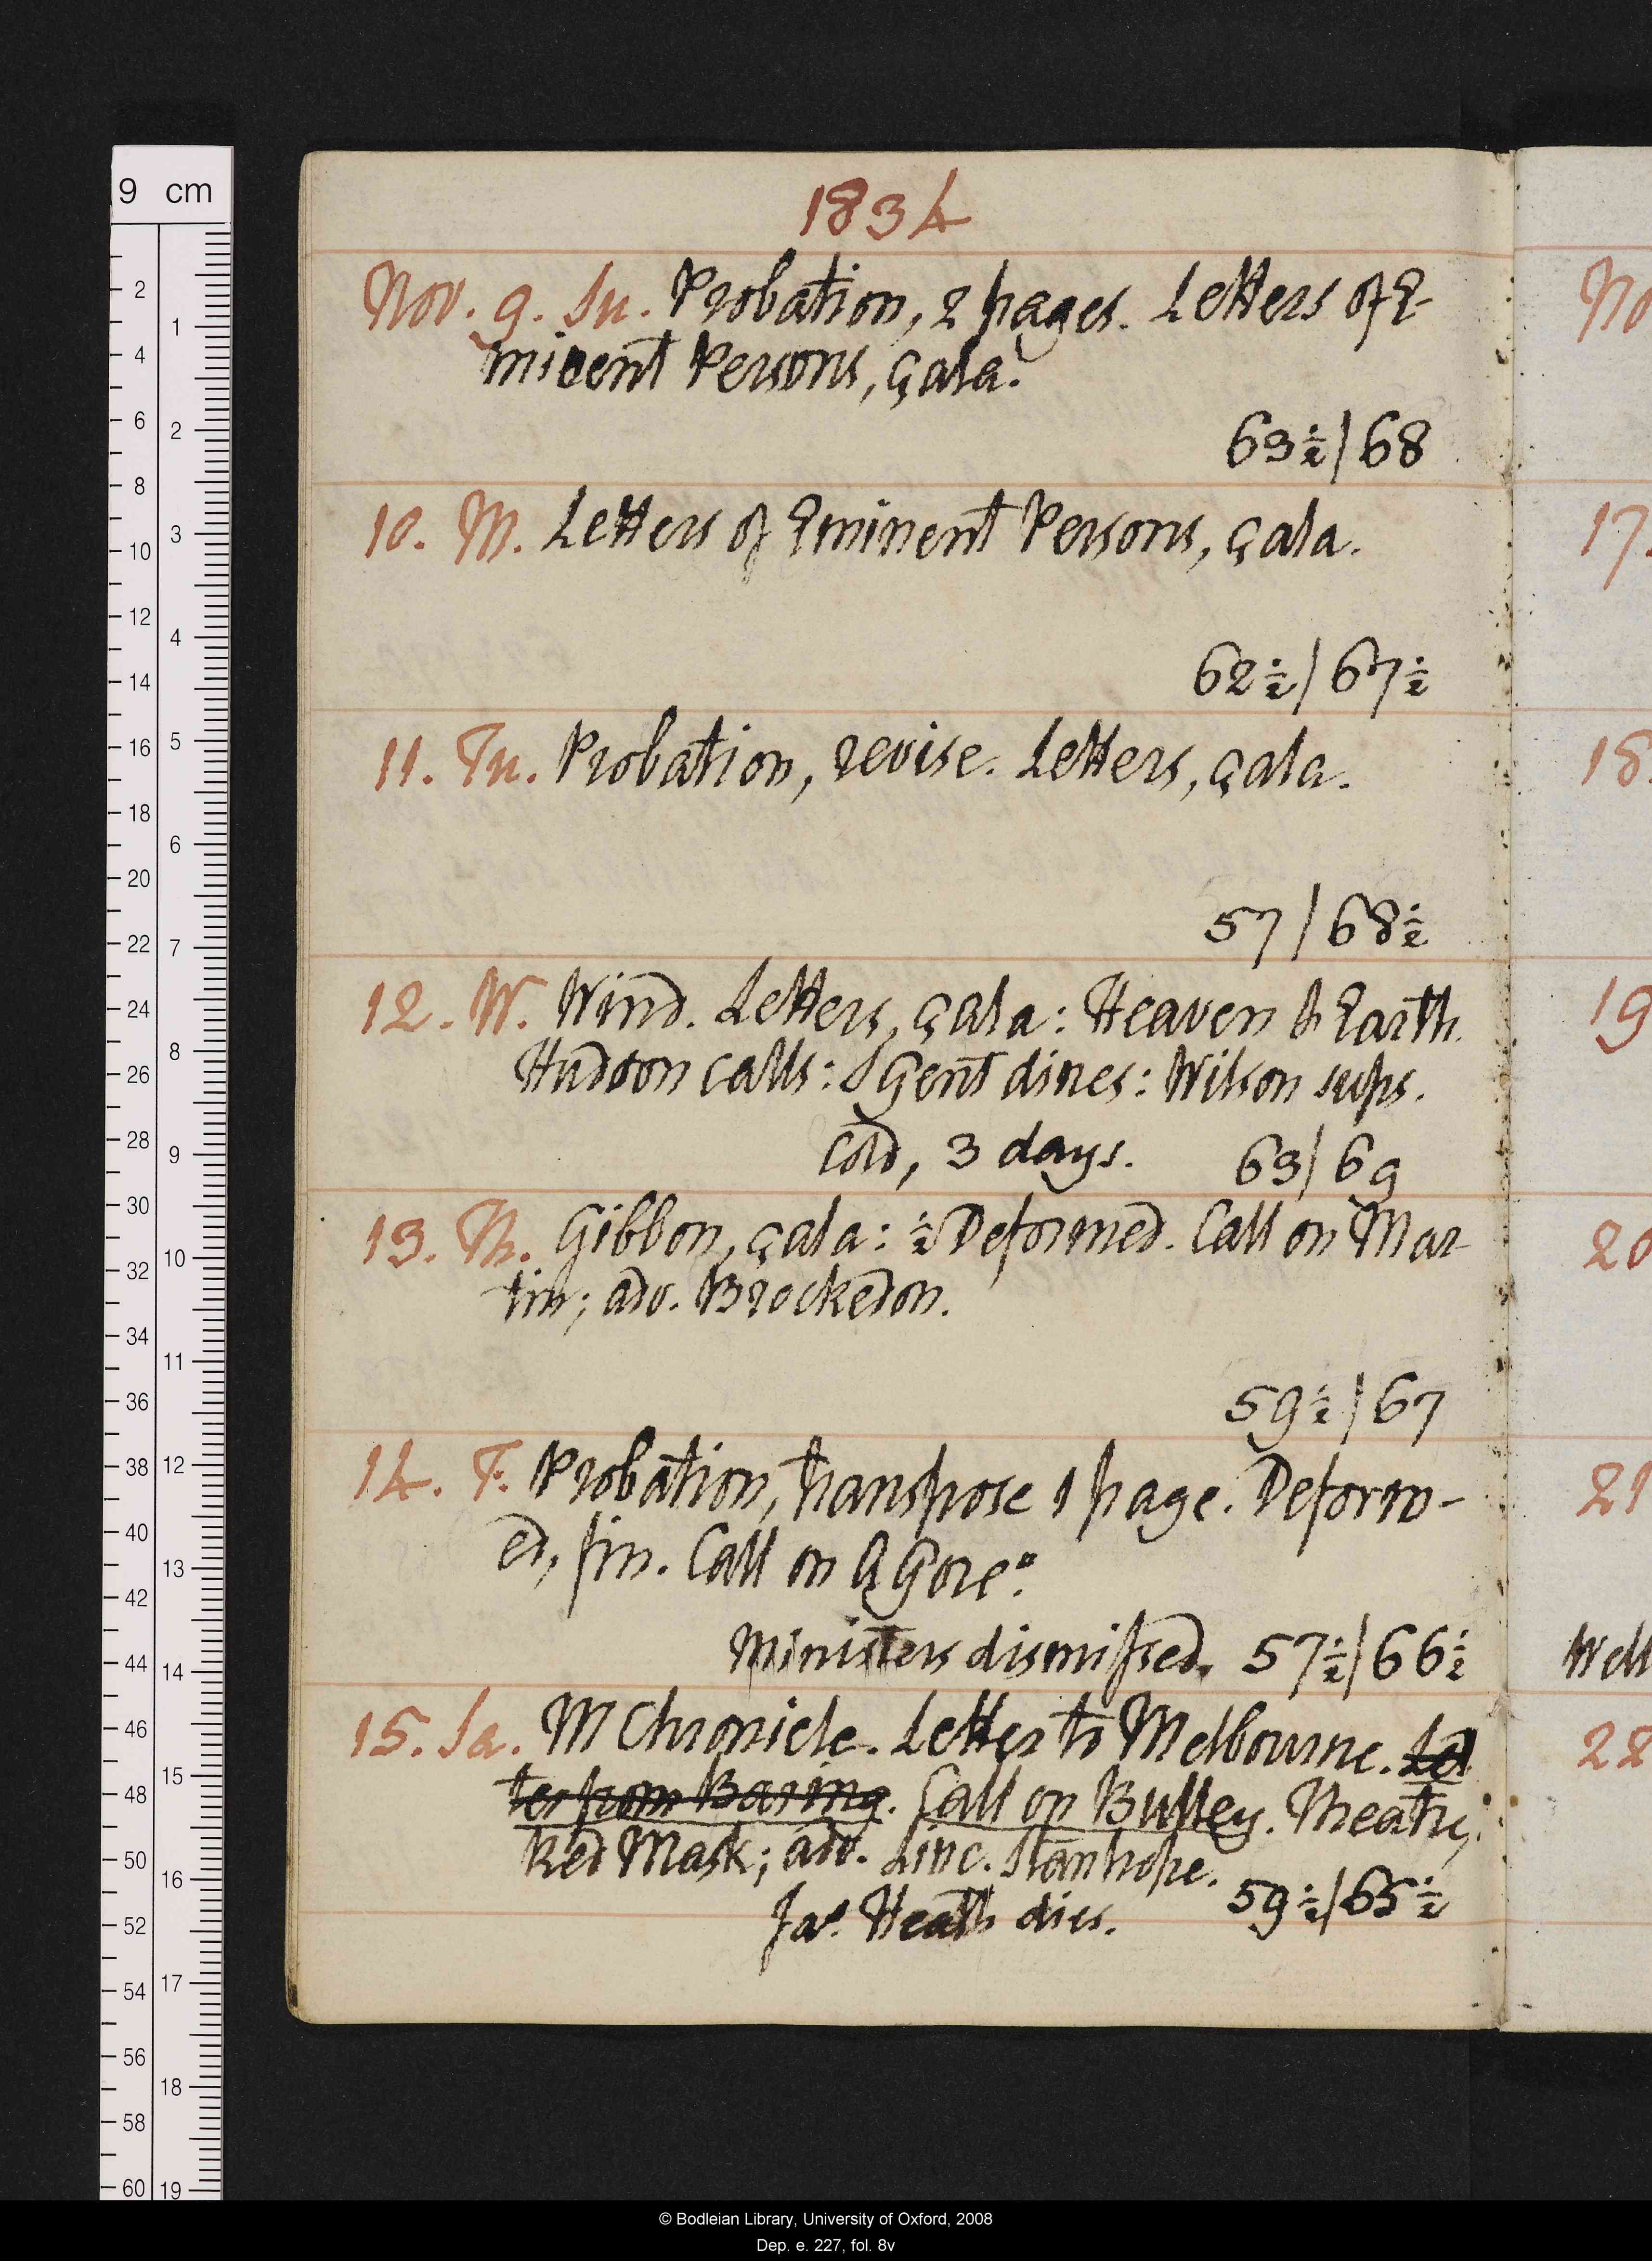 1834
Nov. 9. Su. Probation, 2 pages. Letters of E-
minent Persons, çala.
63½/68
10. M. Letters of Eminent Persons, çala.
62½/67½
11. Tu. Probation, revise. Letters, çala.
57/68½
12. W. Wind. Letters, çala: Heaven & Earth.
Hudson calls: S Gent dines: Wilson sups.
Cold, 3 days. 63/69
13. Th. Gibbon, çala: ½ Deformed. Call on Mar-
tin; adv. Brockedon.
59½/67
14. F. Probation, transpose 1 page. Deform-
ed, fin. Call on A Gore°.
Ministers dismissed. 57½/66½
15. Sa. M Chronicle. Letter to Melbourne. Let
ter from Baring. Call on Bulley. Theatre,
Red Mask; adv. Linc. Stanhope.
Jas. Heath dies. 59½/65½
No
17.
18.
19
20
21
Well
22
9 cm
2 4 6 8 10 12 14 16 18 20 22 24 26 28 30 32 34 36 38 40 42 44 46 48 50 52 54 56 58 60
1 2 3 4 5 6 7 8 9 10 11 12 13 14 15 16 17 18 19
© Bodleian Library, University of Oxford, 2008
Dep. e. 227, fol. 8v